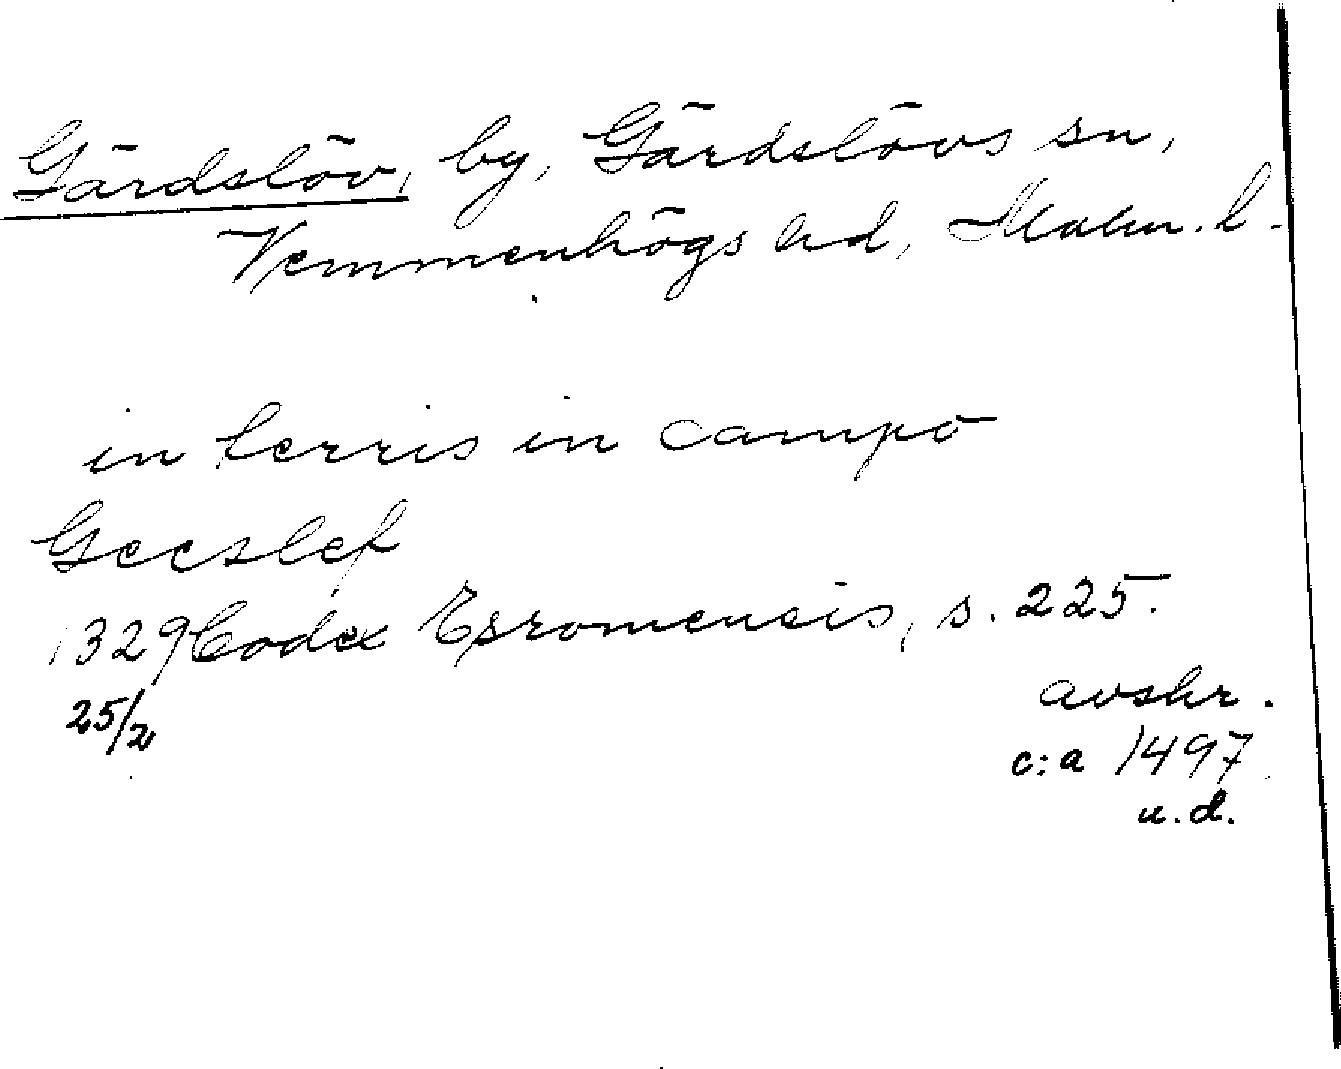 Gärdslöv, by, Gärdslövs sn,
Vemmenhögs hd, Malm. l.
in terris in campo
Geeslef
1329 Codex Esromensis, s. 225.
25/2
avskr.
c:a 1497
u.d.